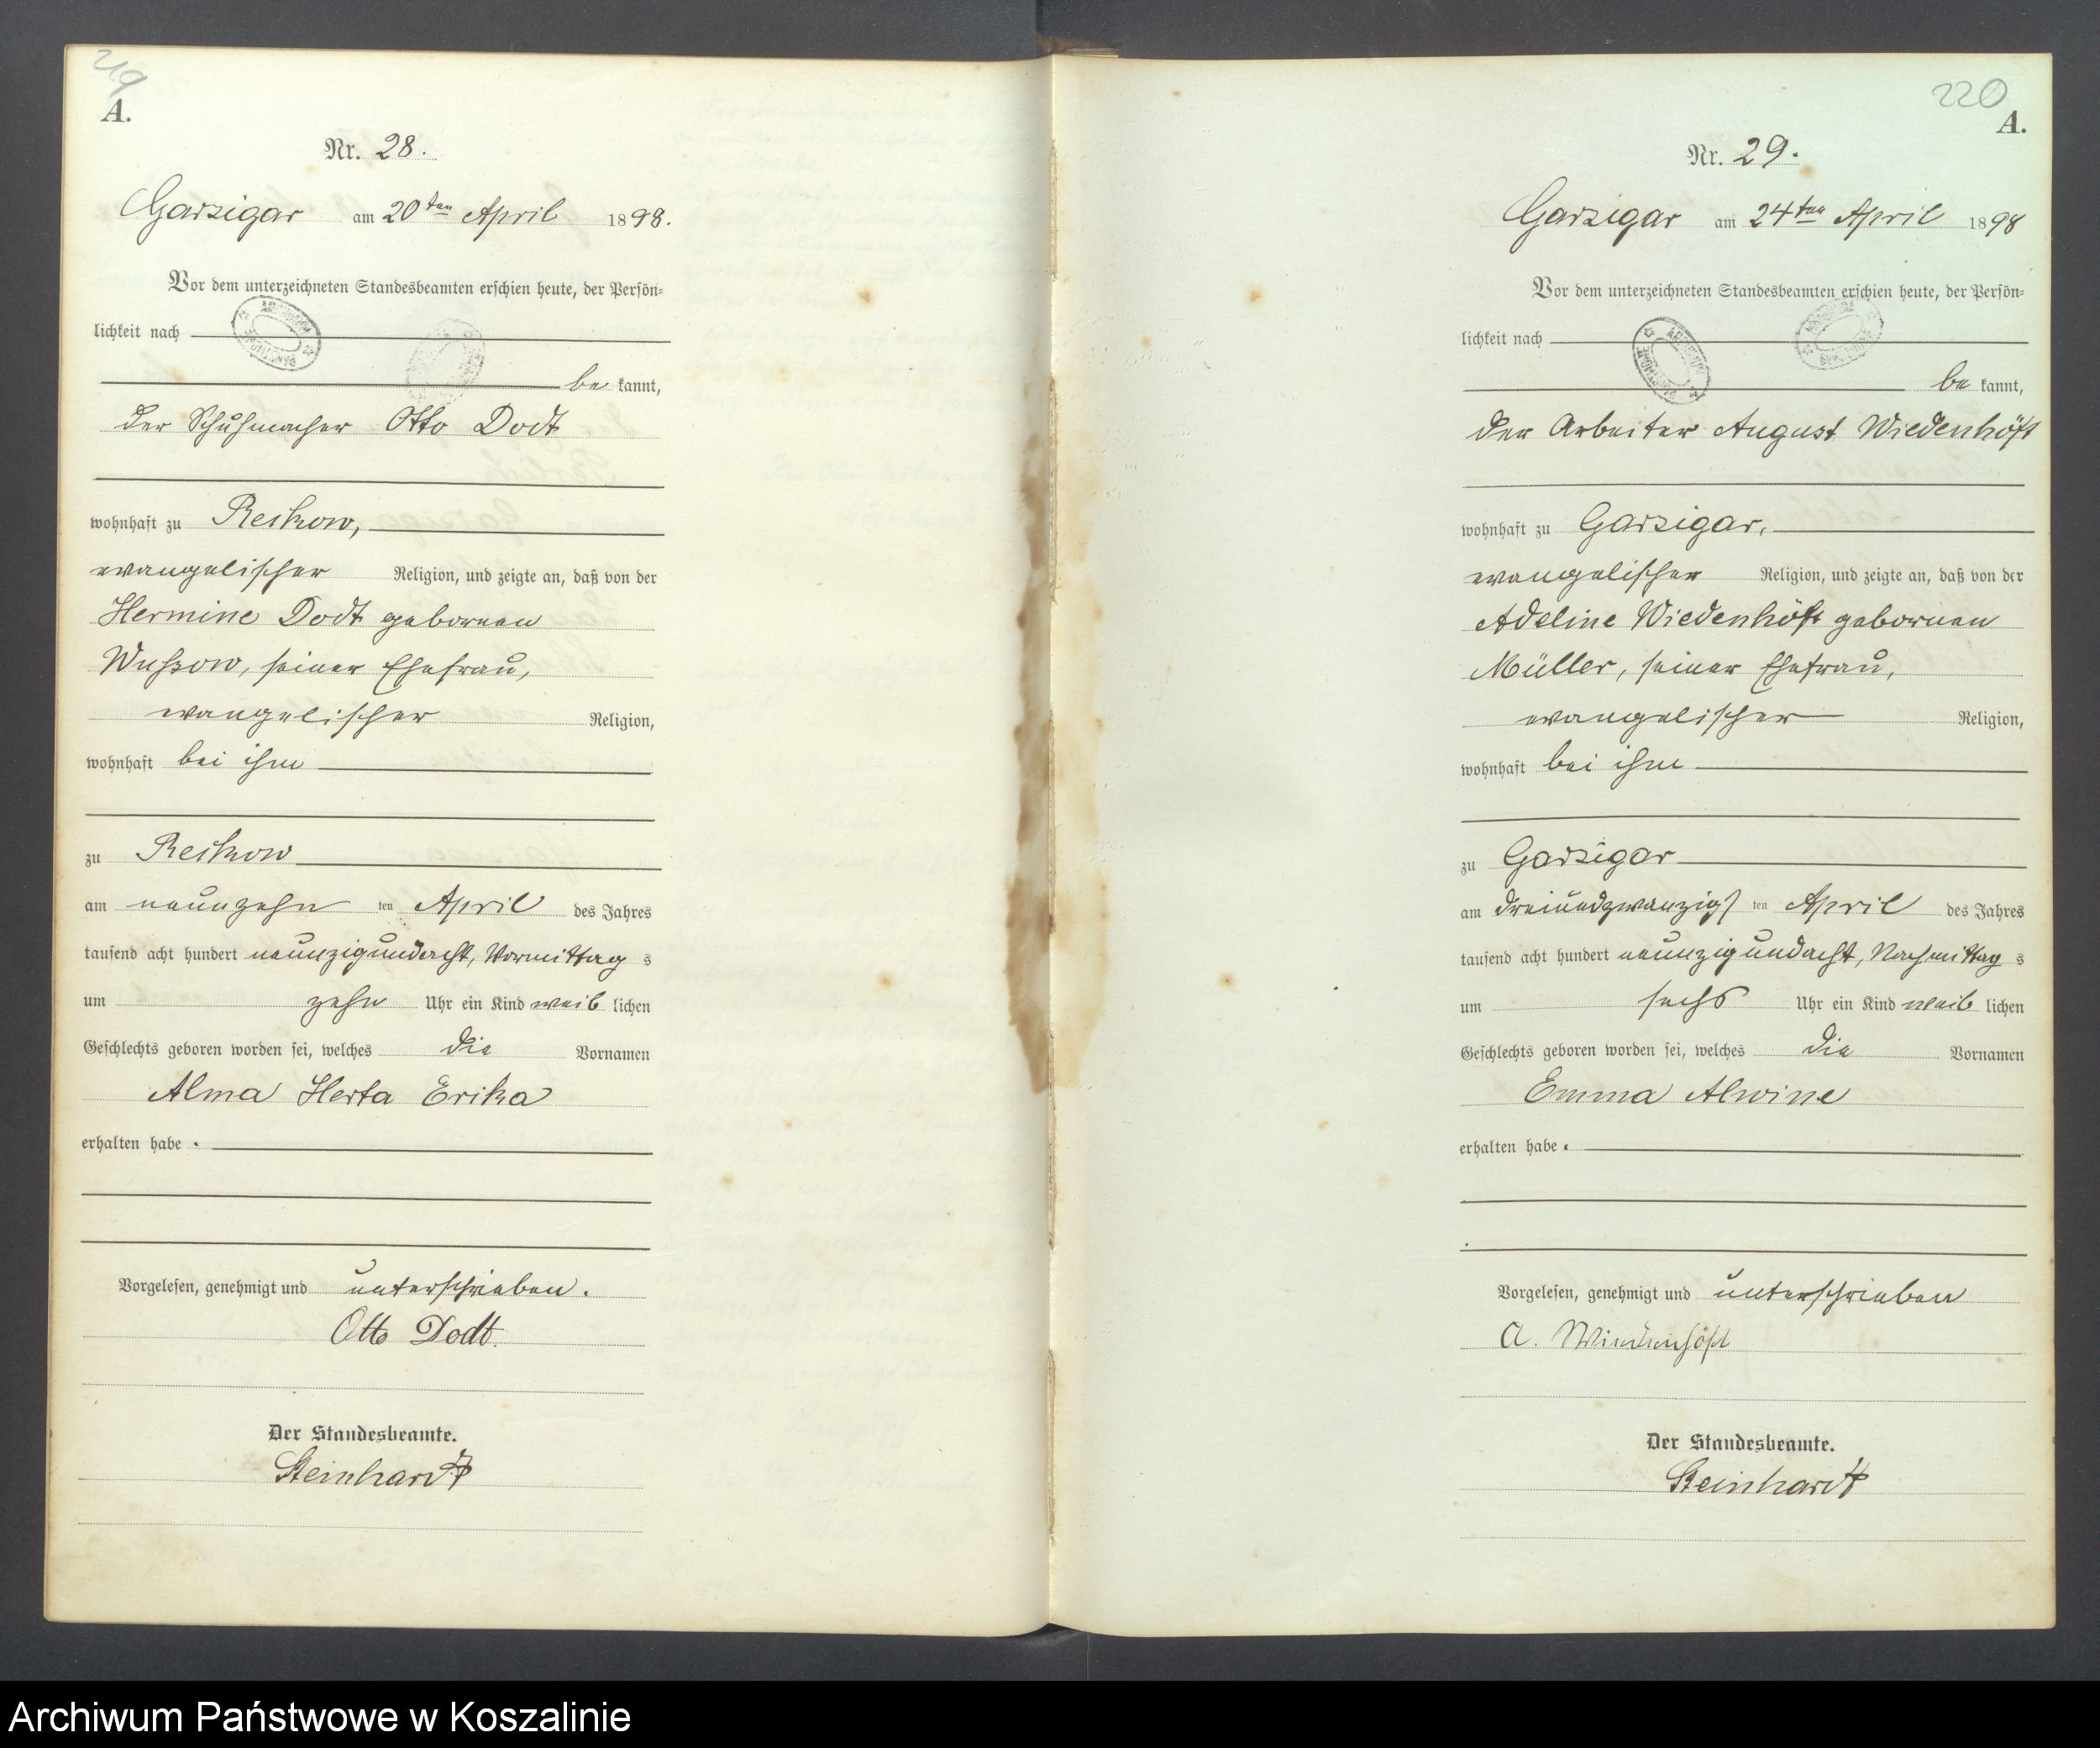 219
A.
Nr. 28.
Garzigar am 20ten April 1898.
Vor dem unterzeichneten Standesbeamten erschien heute, der Persön-
lichkeit nach
be kannt,
der Schuhmacher Otto Dodt
wohnhaft zu Reckow,
evangelischer Religion, und zeigte an, daß von der
Hermine Dodt gebornen
Wussow, seiner Ehefrau,
evangelischer Religion,
wohnhaft bei ihm
zu Reckow
am neunzehn ten April des Jahres
tausend acht hundert neunzigundacht, Vormittag s
um zehn Uhr ein Kind weib lichen
Geschlechts geboren worden sei, welches die Vornamen
Alma Herta Erika
erhalten habe.
Vorgelesen, genehmigt und unterschrieben.
Otto Dodt.
Der Standesbeamte.
Steinhardt
220
A.
Nr. 29.
Garzigar am 24ten April 1898
Vor dem unterzeichneten Standesbeamten erschien heute, der Persön-
lichkeit nach
be kannt,
der Arbeiter August Wiedenhöft
wohnhaft zu Garzigar,
evangelischer Religion, und zeigte an, daß von der
Adeline Wiedenhöft gebornen
Müller, seiner Ehefrau,
evangelischer Religion,
wohnhaft bei ihm
zu Garzigar
am dreiundzwanzigs ten April des Jahres
tausend acht hundert neunzigundacht, Nachmittag s
um sechs Uhr ein Kind weib lichen
Geschlechts geboren worden sei, welches die Vornamen
Emma Alwine
erhalten habe.
Vorgelesen, genehmigt und unterschrieben
A. Wiedenhöft
Der Standesbeamte.
Steinhardt
Archiwum Państwowe w Koszalinie